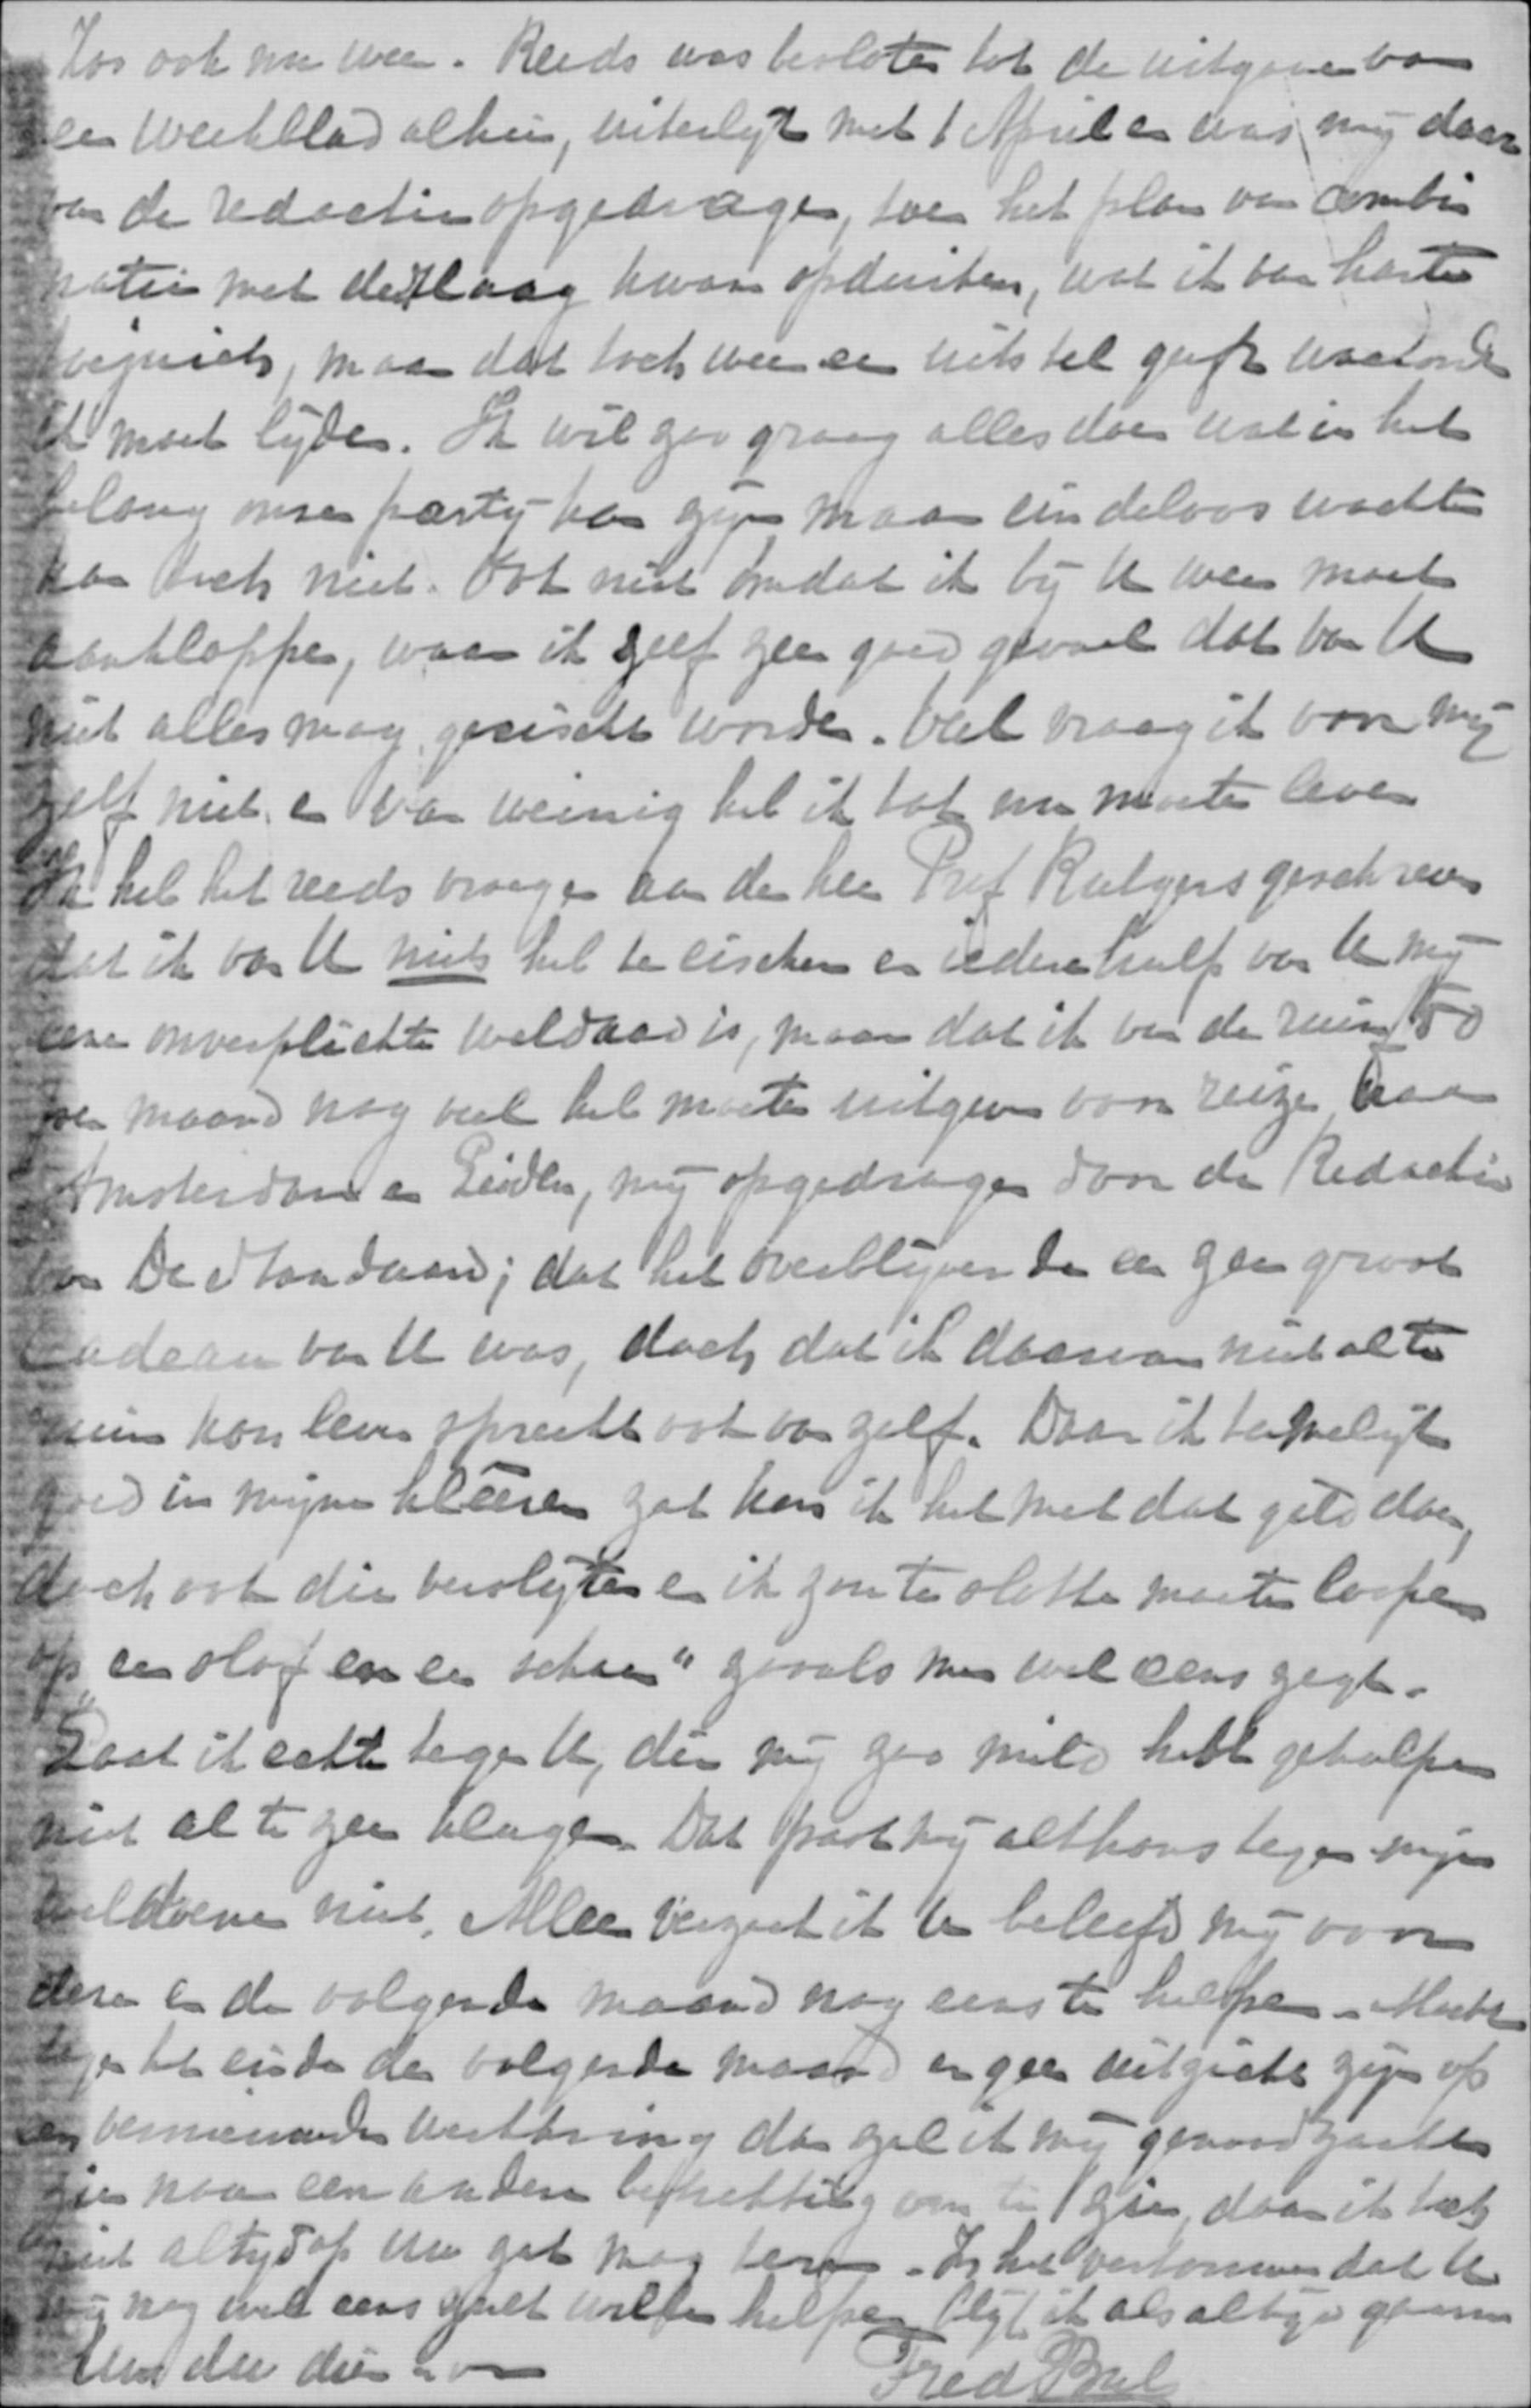 Zoo ook nu weer. Reeds was besloten tot de uitgave van
een weekblad alhier, uiterlijk met 1 April en was mij daar
van de redactie opgedragen, toen het plan van combi
natie met den Haag kwam opduiken, wat ik van harte
toejuich, maar dat toch weer een uitstel geeft waaronder
ik moet lijden. Ik wil zoo graag alles doen wat in het
belang onzer partij kan zijn, maar eindeloos wachten
kan toch niet. Ook niet omdat ik bij U weer moet
aankloppen, waar ik zelf zeer goed gevoel dat van U
niet alles mag geeischt worden. Veel vraag ik voor mij
zelf niet en van weinig heb ik tot nu moeten leven
Ik heb het reeds vroeger aan den heer Prof Rutgers geschreven
dat ik van U niets heb te eischen en iedere hulp van U mij
eene onverplichte weldaad is, maar dat ik van de ruim 50
per maand nog veel heb moeten uitgeven voor reizen naar
Amsterdam en Leiden, mij opgedragen door de Redactie
van De Standaard; dat het overblijvende een zeer groot
cadeau van U was, doch dat ik daarvan niet al te
ruim kon leven spreekt ook van zelf. Daar ik tamelijk
goed in mijne kleeren zat kon ik het met dat geld doen,
doch ook die verslijten en ik zou ten slotte moeten loopen
op „een slof en een schoen" zooals men wel eens zegt.
Laat ik echter tegen U, die mij zoo mild hebt geholpen
niet al te zeer klagen. Dat past mij althans tegen mijn
weldoener niet. Alleen verzoek ik U beleefd mij voor
deze en de volgende maand nog eens te helpen. Mocht
tegen het einde der volgende maand er geen uitzicht zijn op
een vernieuwde werkkring dan zal ik mij genoodzaakt
zien naar een andere betrekking om te zien, daar ik toch
niet altijd op Uw zak mag teren. In het vertrouwen dat U
mij nog wel eens zult willen helpen blijf ik als altijd gaarne
Uw dw dienaar
Fred Bul